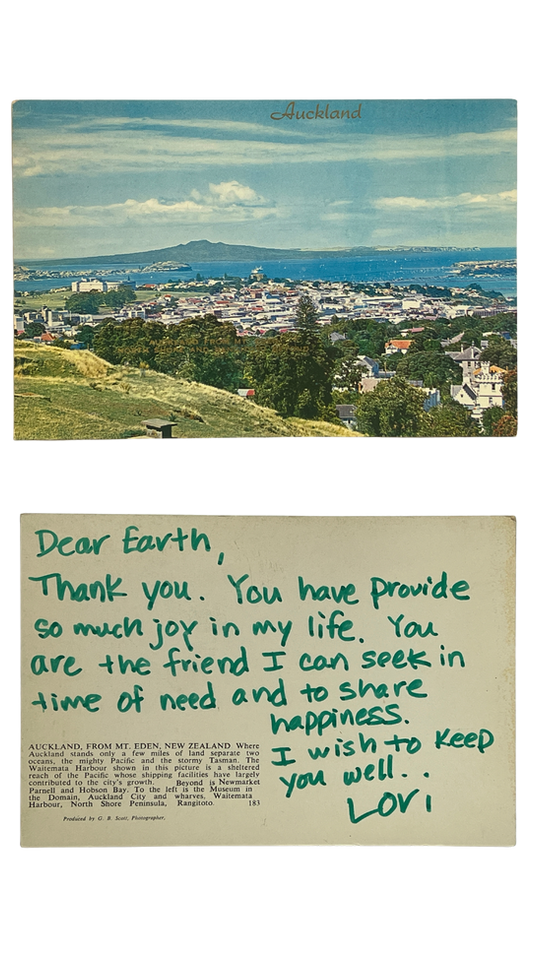 Auckland
Dear Earth,
Thank you. You have provide
so much joy in my life. You
are the friend I can seek in
time of need and to share
happiness.
I wish to keep
you well. .
Lori
AUCKLAND, FROM MT. EDEN, NEW ZEALAND Where
Auckland stands only a few miles of land separate two
oceans, the mighty Pacific and the stormy Tasman. The
Waitemata Harbour shown in this picture is a sheltered
reach of the Pacific whose shipping facilities have largely
contributed to the city's growth. Beyond is Newmarket
Parnell and Hobson Bay. To the left is the Museum in
the Domain, Auckland City and wharves, Waitemata
Harbour, North Shore Peninsula, Rangitoto. 183
Produced by G. B. Scott, Photographer.